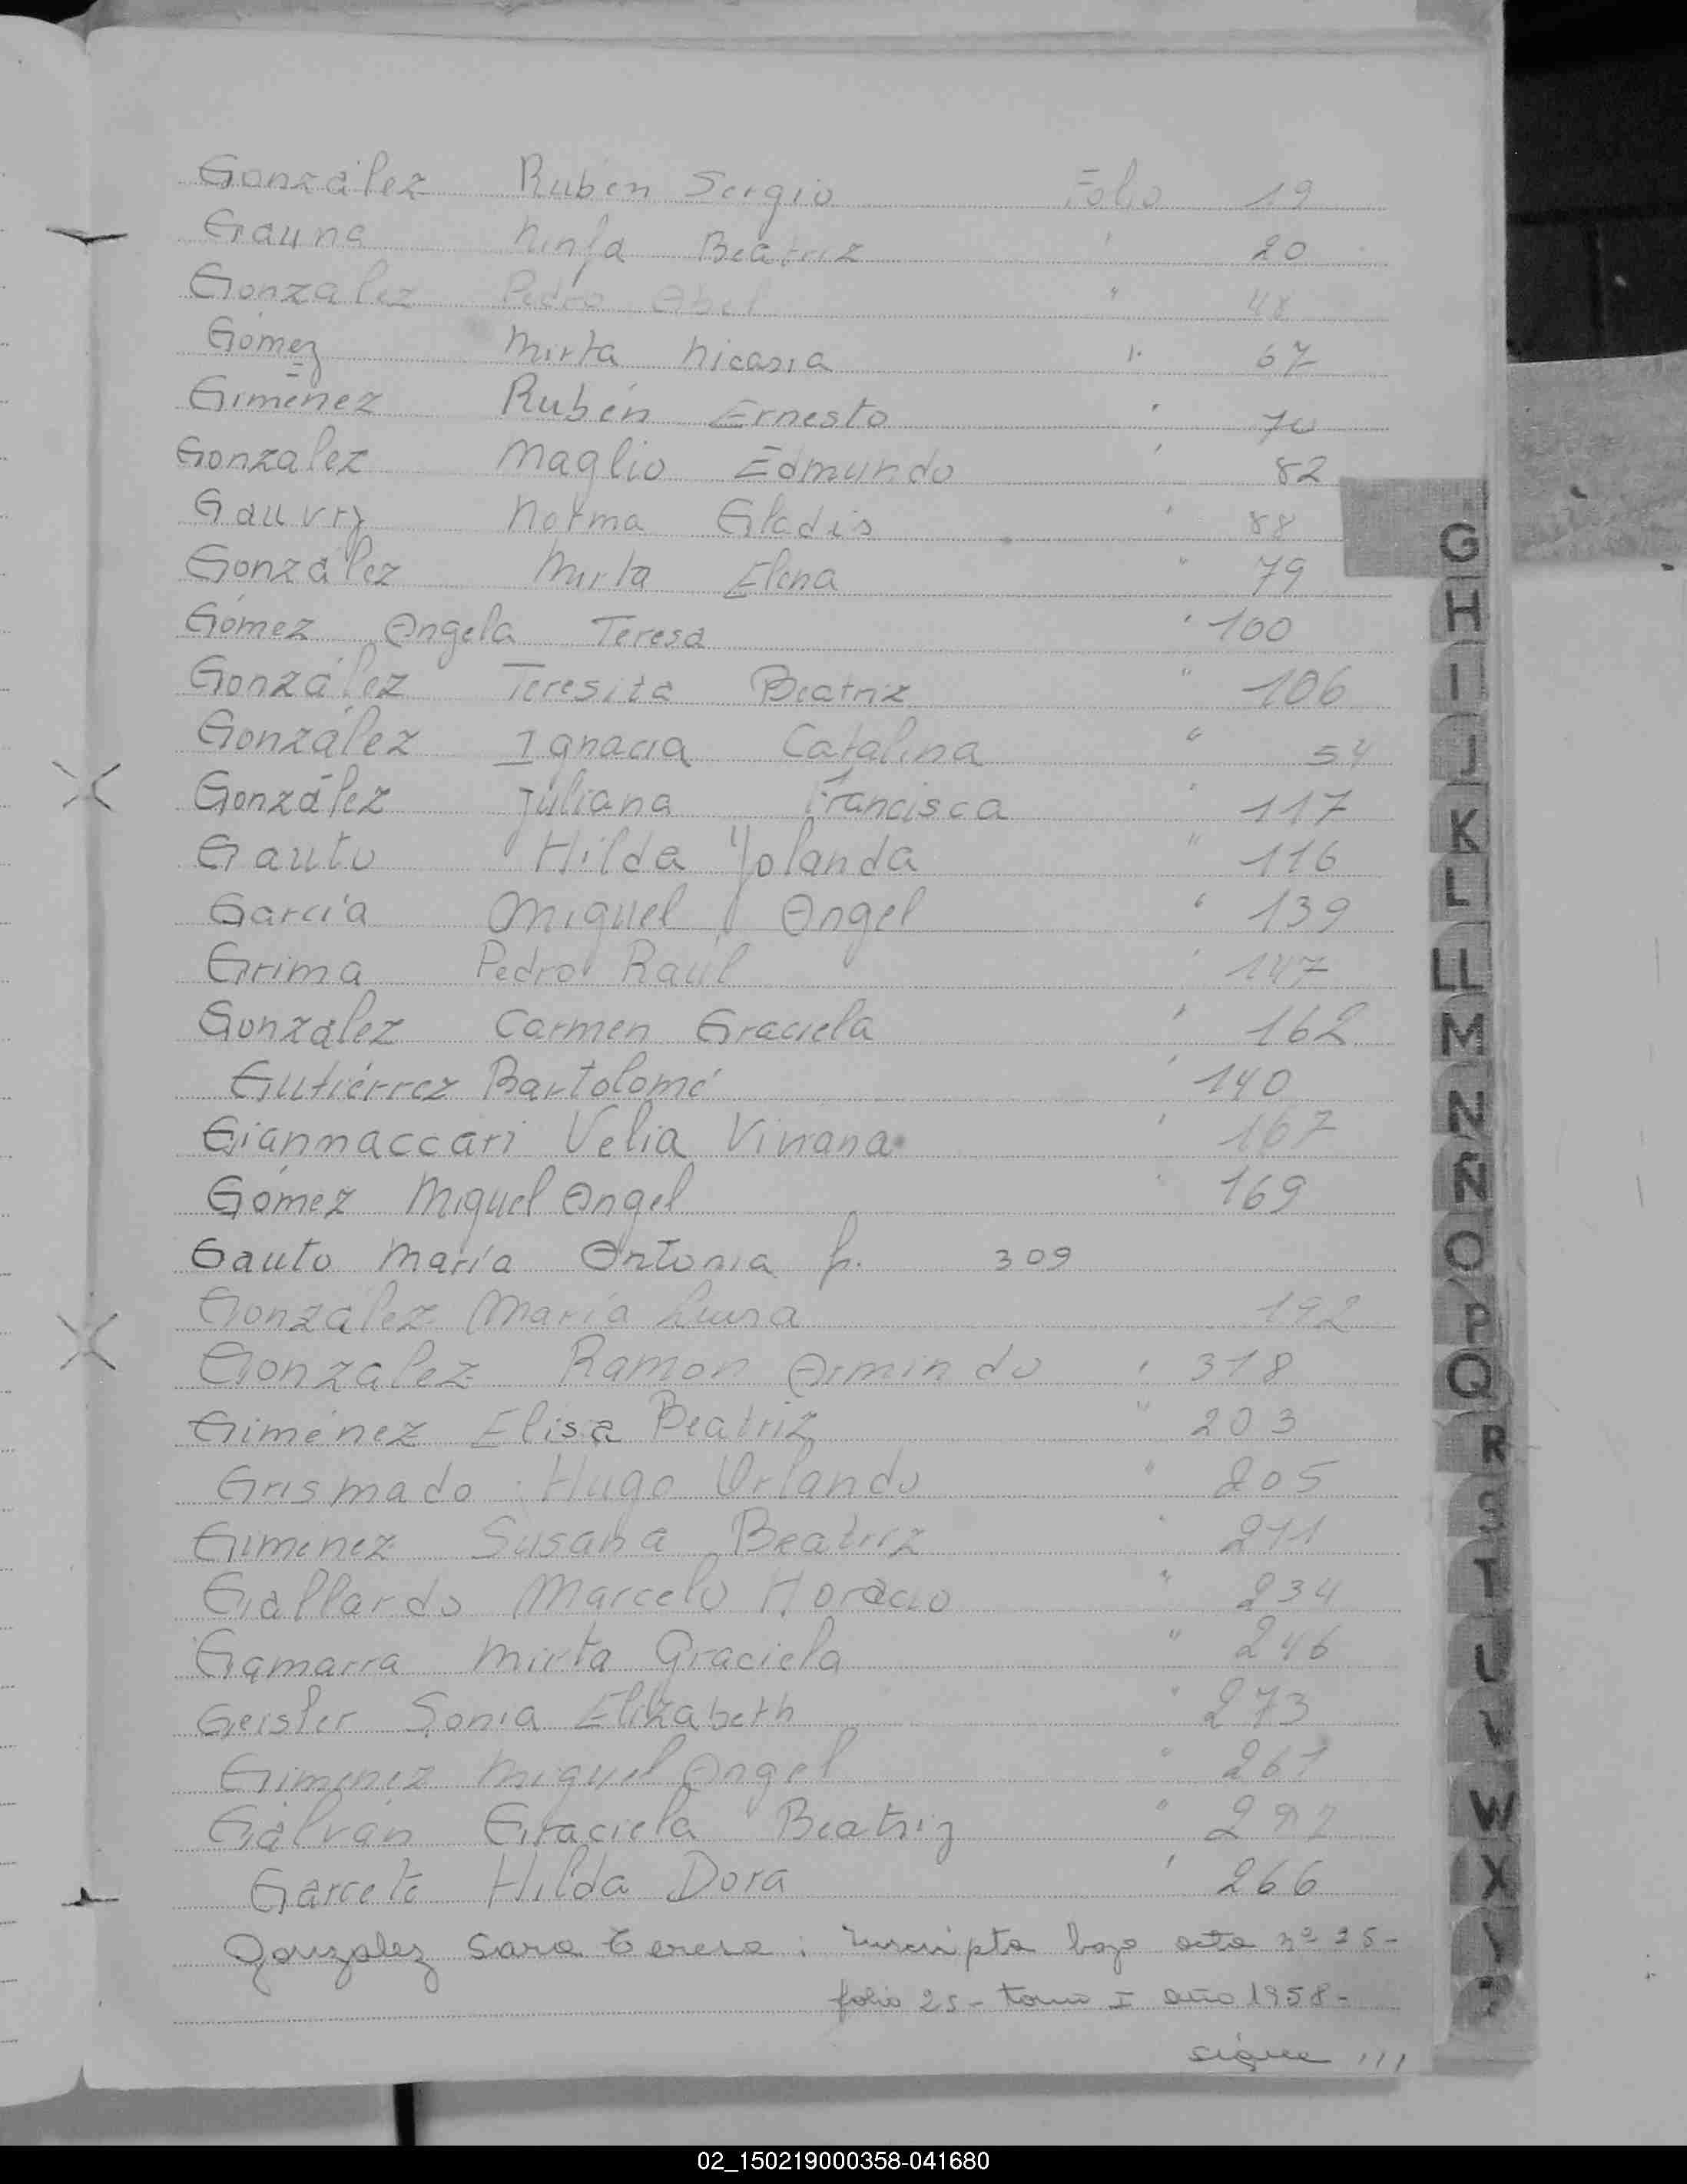 González Rubén Sergio Folio 19
Gauna Ninfa Beatriz " 20
Gonzalez Pedro Abel " 48
Gómez Mirta Nicasia " 67
Gimenez Rubén Ernesto " 70
Gonzalez Maglio Edmundo " 82
Gauvry Norma Gladis " 88
González Mirta Elena " 79
Gómez Angela Teresa " 100
González Teresita Beatriz " 106
González Ignacia Catalina " 54
González Juliana Francisca " 117
Gauto Hilda Yolanda " 116
García Miguel Angel " 139
Grima Pedro Raúl " 147
González Carmen Graciela " 162
Gutiérrez Bartolomé " 140
Gianmaccari Velia Viviana " 167
Gómez Miguel Angel " 169
Gauto María Antonia f. 309
González María Luisa 192
Gonzalez Ramon Armindo " 318
Giménez Elisa Beatriz " 203
Grismado Hugo Orlando " 205
Gimenez Susana Beatriz " 211
Gallardo Marcelo Horacio " 234
Gamarra Mirta Graciela " 246
Geisler Sonia Elizabeth " 273
Gimenez Miguel Angel " 261
Galván Graciela Beatriz " 292
Garcete Hilda Dora " 266
Gonzalez Sara Teresa : Inscripta bajo acta nº 25-
folio 25- tomo I año 1958-
sigue ///
G
H
I
J
K
L
LL
M
N
Ñ
O
P
Q
R
S
T
U
V
W
X
Y
Z
02_150219000358-041680